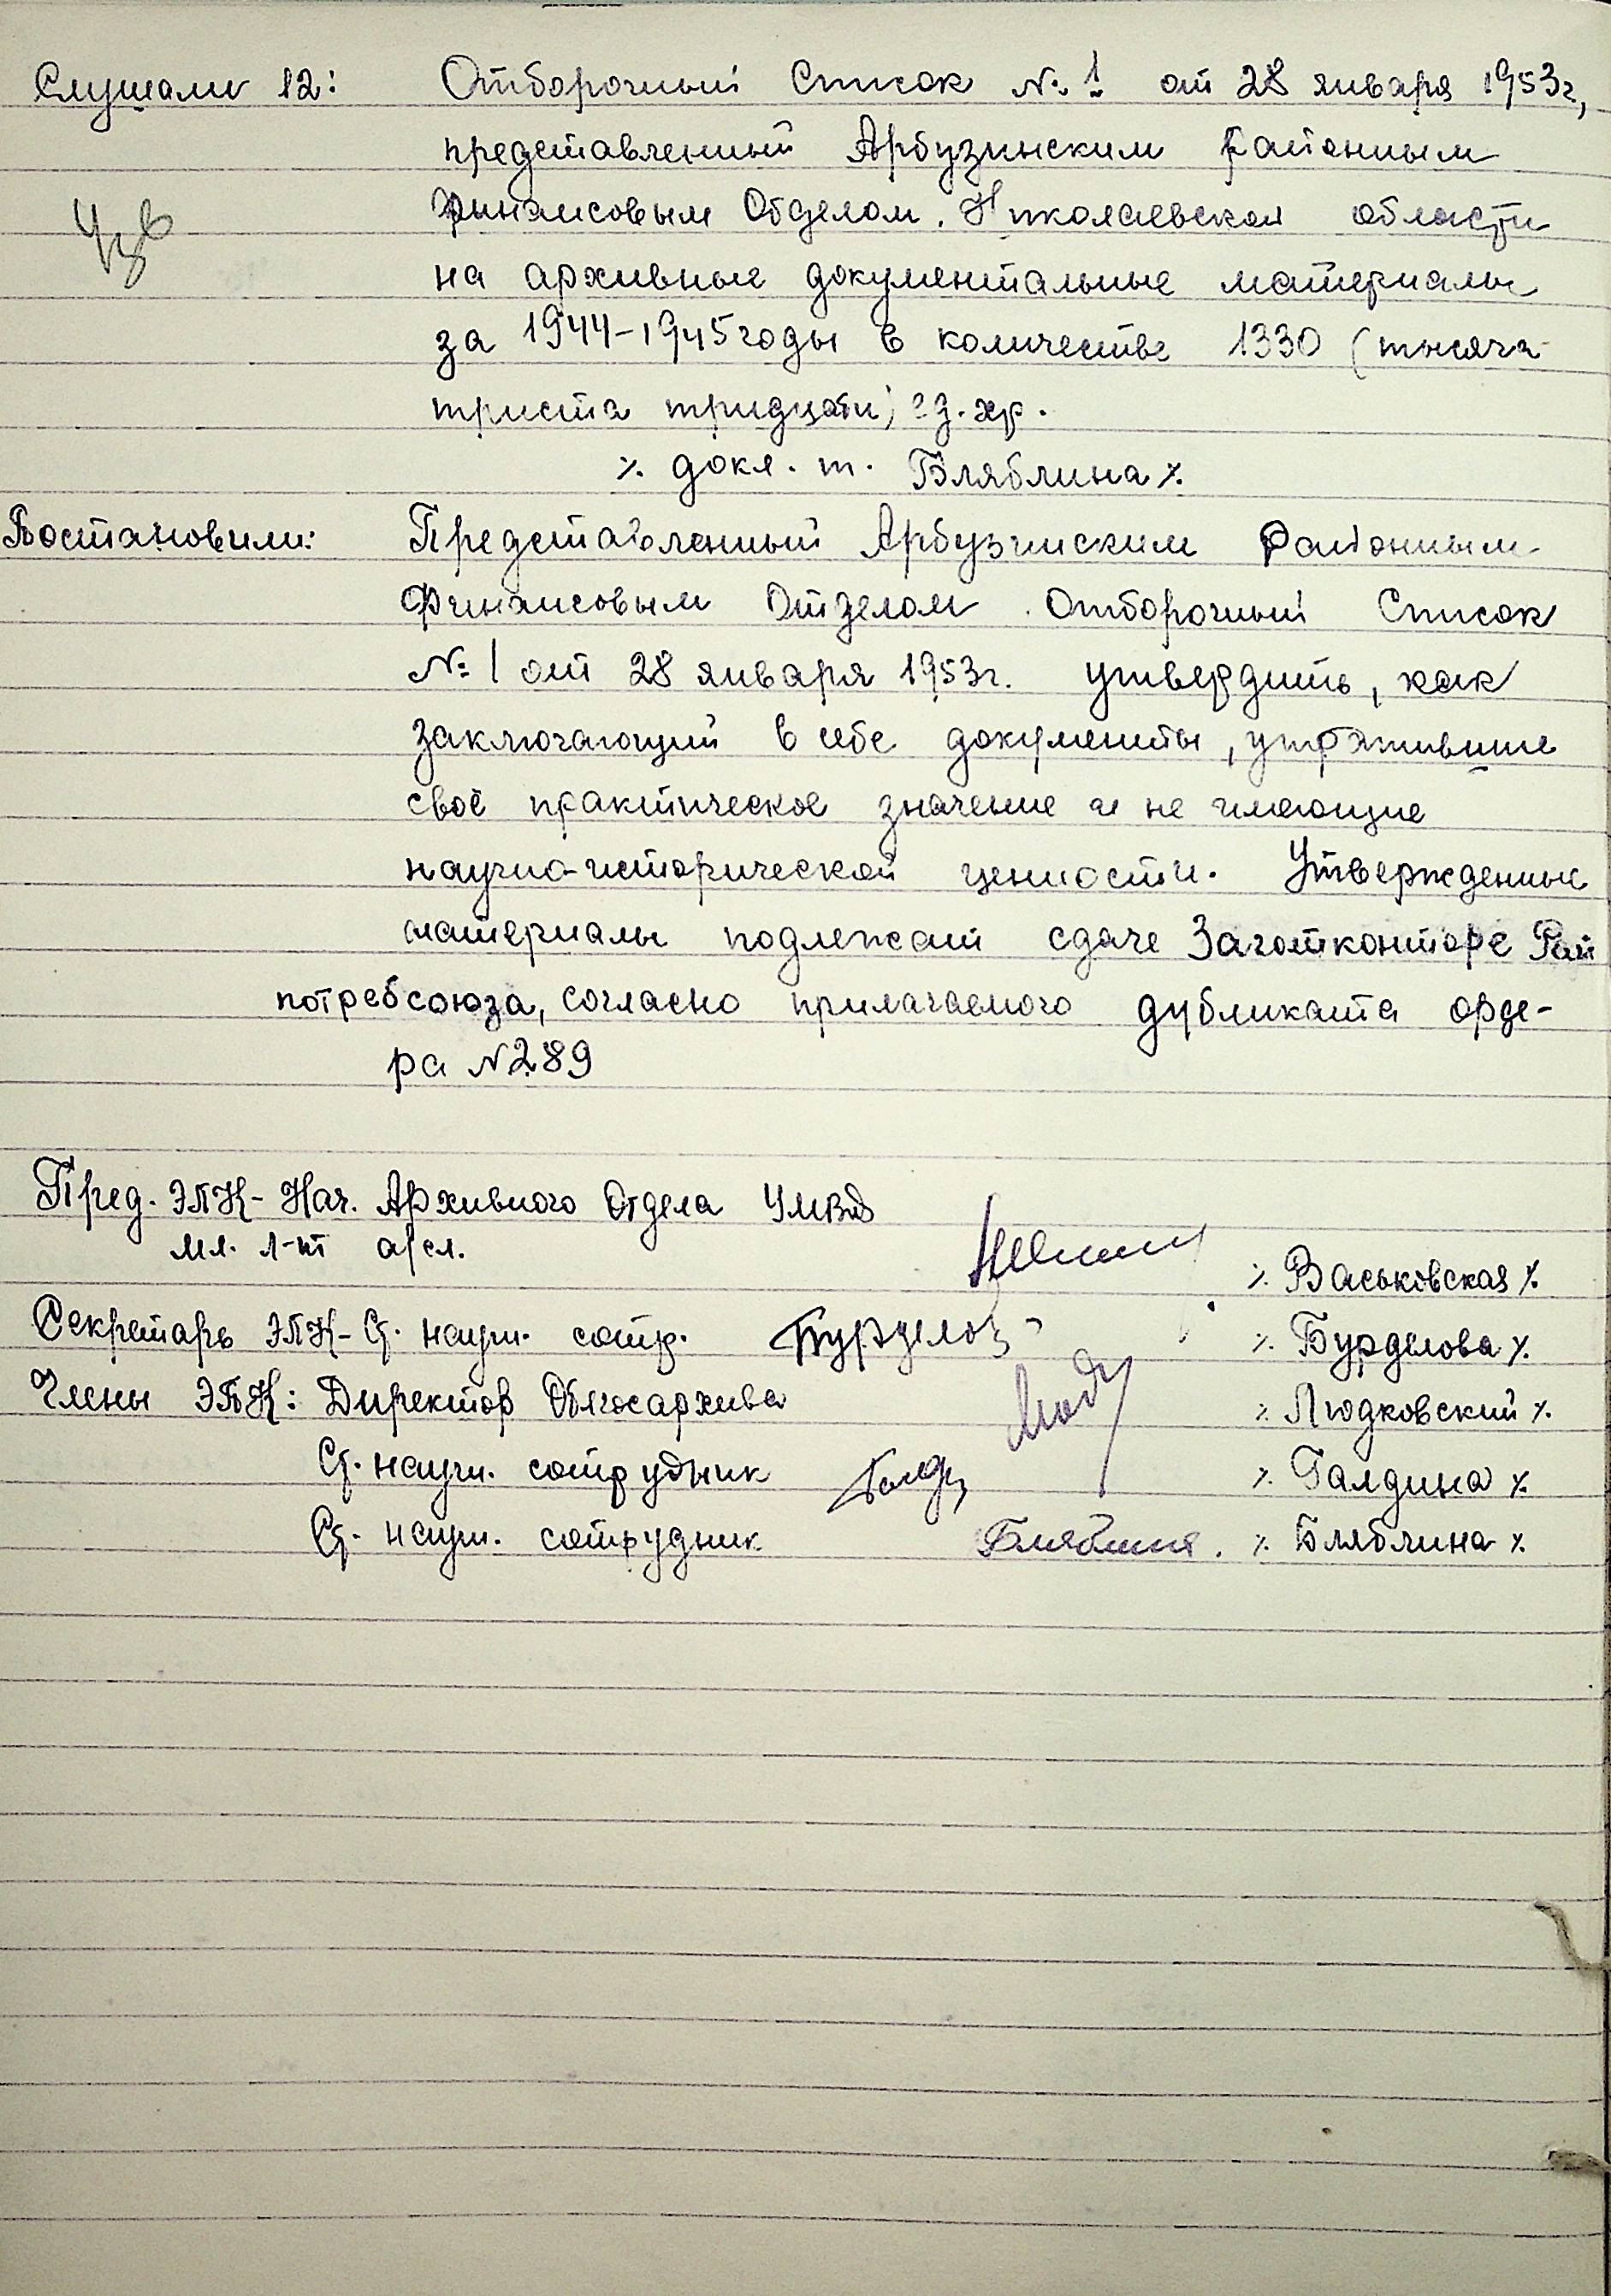 Слушали 12: Отборочный Список №1 от 28 января 1953г,
представленный Арбузинским Районным
Финансовым Отделом. Николаевской области
на архивные документальные материалы
за 1944-1945 годы в количестве 1330 (тысяча
триста тридцать) ед. хр.
%. докл. т. Бляблина %.
Постановили: Представленный Арбузинским Районным
Финансовым Отделом Отборочный Список
№1 от 28 января 1953г. утвердить, как
заключающий в себе документы, утратившие
своё практическое значение и не имеющие
научно-исторической ценности. Утвержденные
материалы подлежат сдаче Заготконторе Рай
потребсоюза, согласно прилагаемого дубликата орде-
ра №289
Пред. ЭПК - Нач. Архивного Отдела УМВД
мл. л-нт а/сл. %. Васьковская %.
Секретарь ЭПК - Ст. научн. сотр. Бурделов %. Бурделова %.
Члены ЭПК: Директор Облгосархива %. Людковский %.
Ст. научн. сотрудник %. Галдина %.
Ст. научн. сотрудник Бляблина. %. Бляблина %.